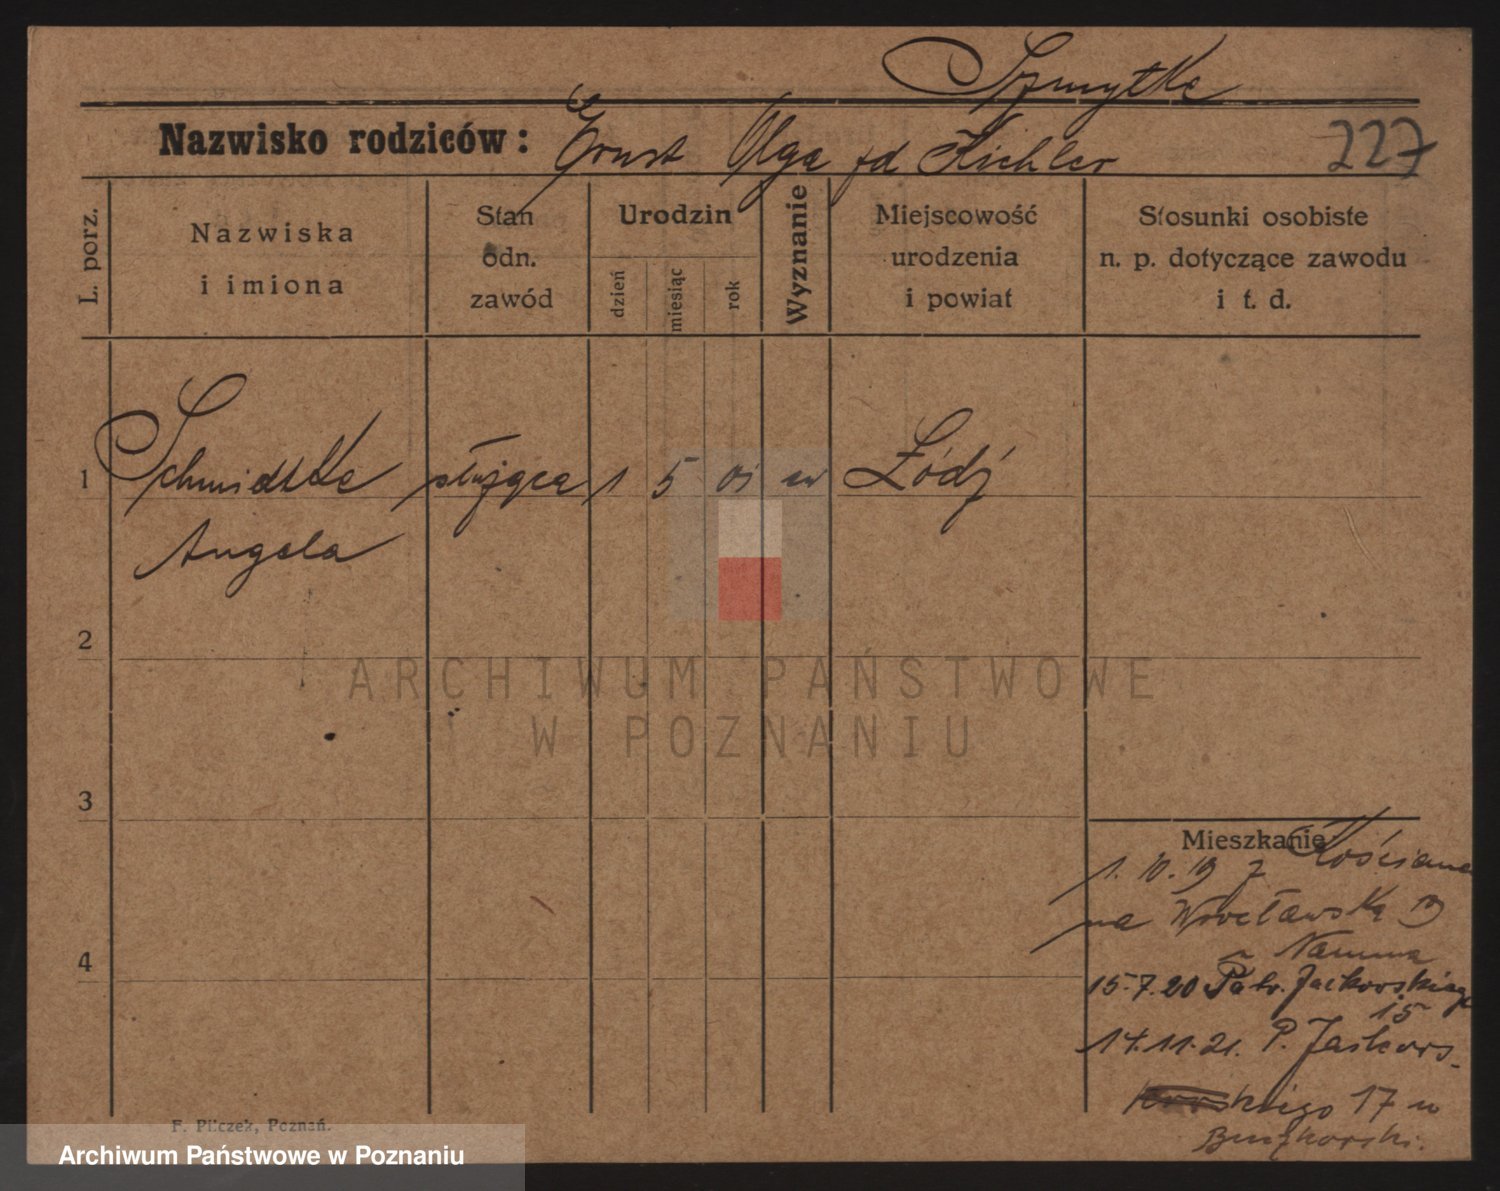 Szmytke
Nazwisko rodziców: Ernst Olga zd Kichler
227
L. porz.
Nazwiska
i imiona
Stan
odn.
zawód
Urodzin
dzień
miesiąc
rok
Wyznanie
Miejscowość
urodzenia
i powiat
Stosunki osobiste
n. p. dotyczące zawodu
i t. d.
1 Schmidtke służąca 1 5 01 ew Łódź
Angela
2
ARCHIWUM PAŃSTWOWE
W POZNANIU
3
Mieszkanie
1. 10. 19 z Kościana
na Wrocławską 13
u Namma
4
15.7.20 Patr. Jackowskiego
15
14.11.21. P. Jackows-
kiego 17 u
F. Pilczek, Poznań.
Archiwum Państwowe w Poznaniu